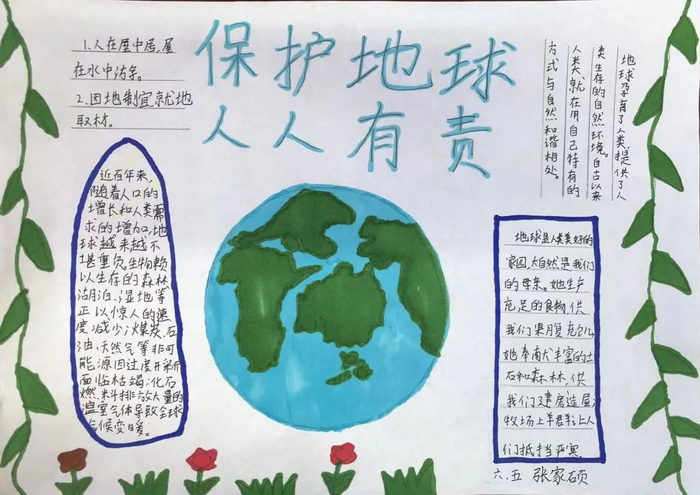 保护地球
人人有责
1.人在屋中居,屋
在水中沽余。
2.因地制宜,就地
取材。
地球孕育了人类,提供了人
类生存的自然环境。自古以来
人类就在用自己特有的
方式与自然和谐相处。
近百年来,
随着人口的
增长和人类需
求的增加,地
球越来越不
堪重负,生物赖
以生存的森林
湖泊、湿地等
正以惊人的速
度减少,煤炭、石
油、天然气等非可
能源因过度开采
面临枯竭,化石
燃料排放大量的
温室气体导致全球
气候变暖。
地球是人类美好的
家园,大自然是我们
的母亲。她生产
充足的食物,供
我们果腹充饥,
她奉献丰富的土
石和森林,供
我们建房造屋,
牧场上羊群让人
们抵挡严寒
六.五 张家硕